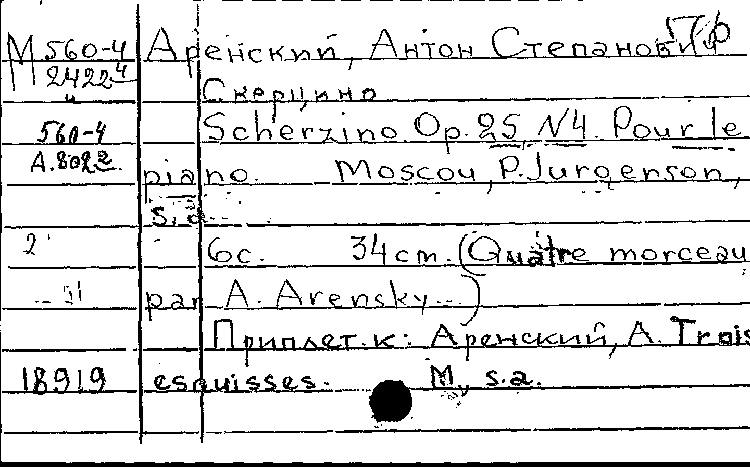 М 560-4 Аренский, Антон Степанович Пф
2422 4
и Скерцино
560-4 Scherzino. Op. 25 N4. Pour le
A.8022 piano. Moscou, P. Jurgenson,
s.d.
2 6с. 34 cm. (Quatre morceau
51 par A. Arensky...)
Приплет. к: Аренский, А. Trois
18919 esquisses. M, s.a.